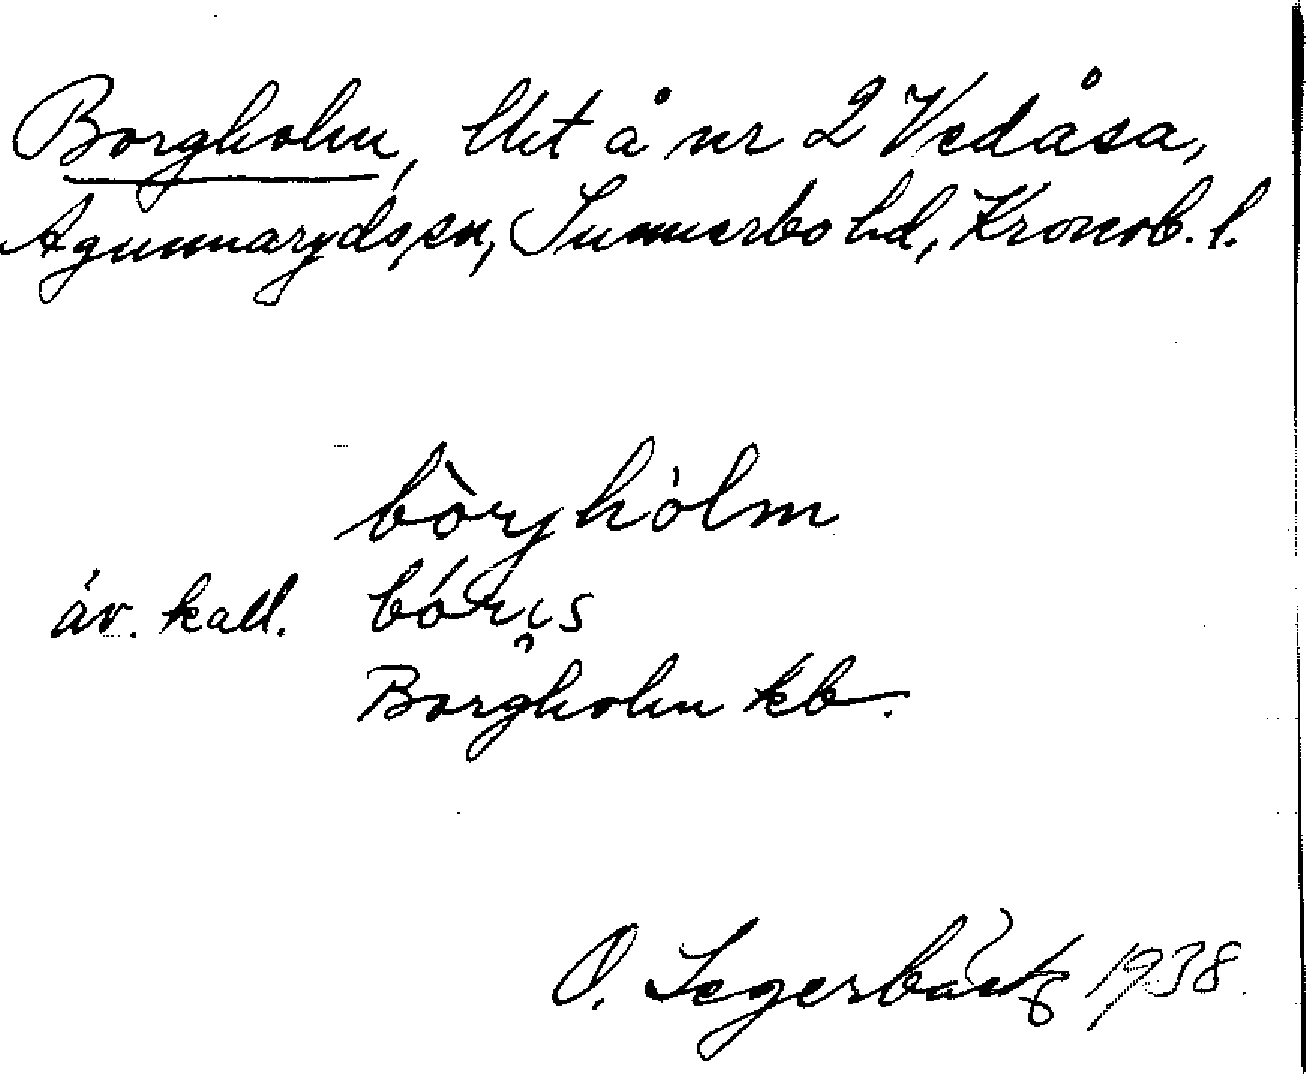 Borgholm, lht å nr 2 Vedåsa,
Agunnaryds sn, Sunnerbo hd, Kronob. l.
bòrjhòlm
áv. kall.
Borgholm kb.
O. Segerbäck 1938